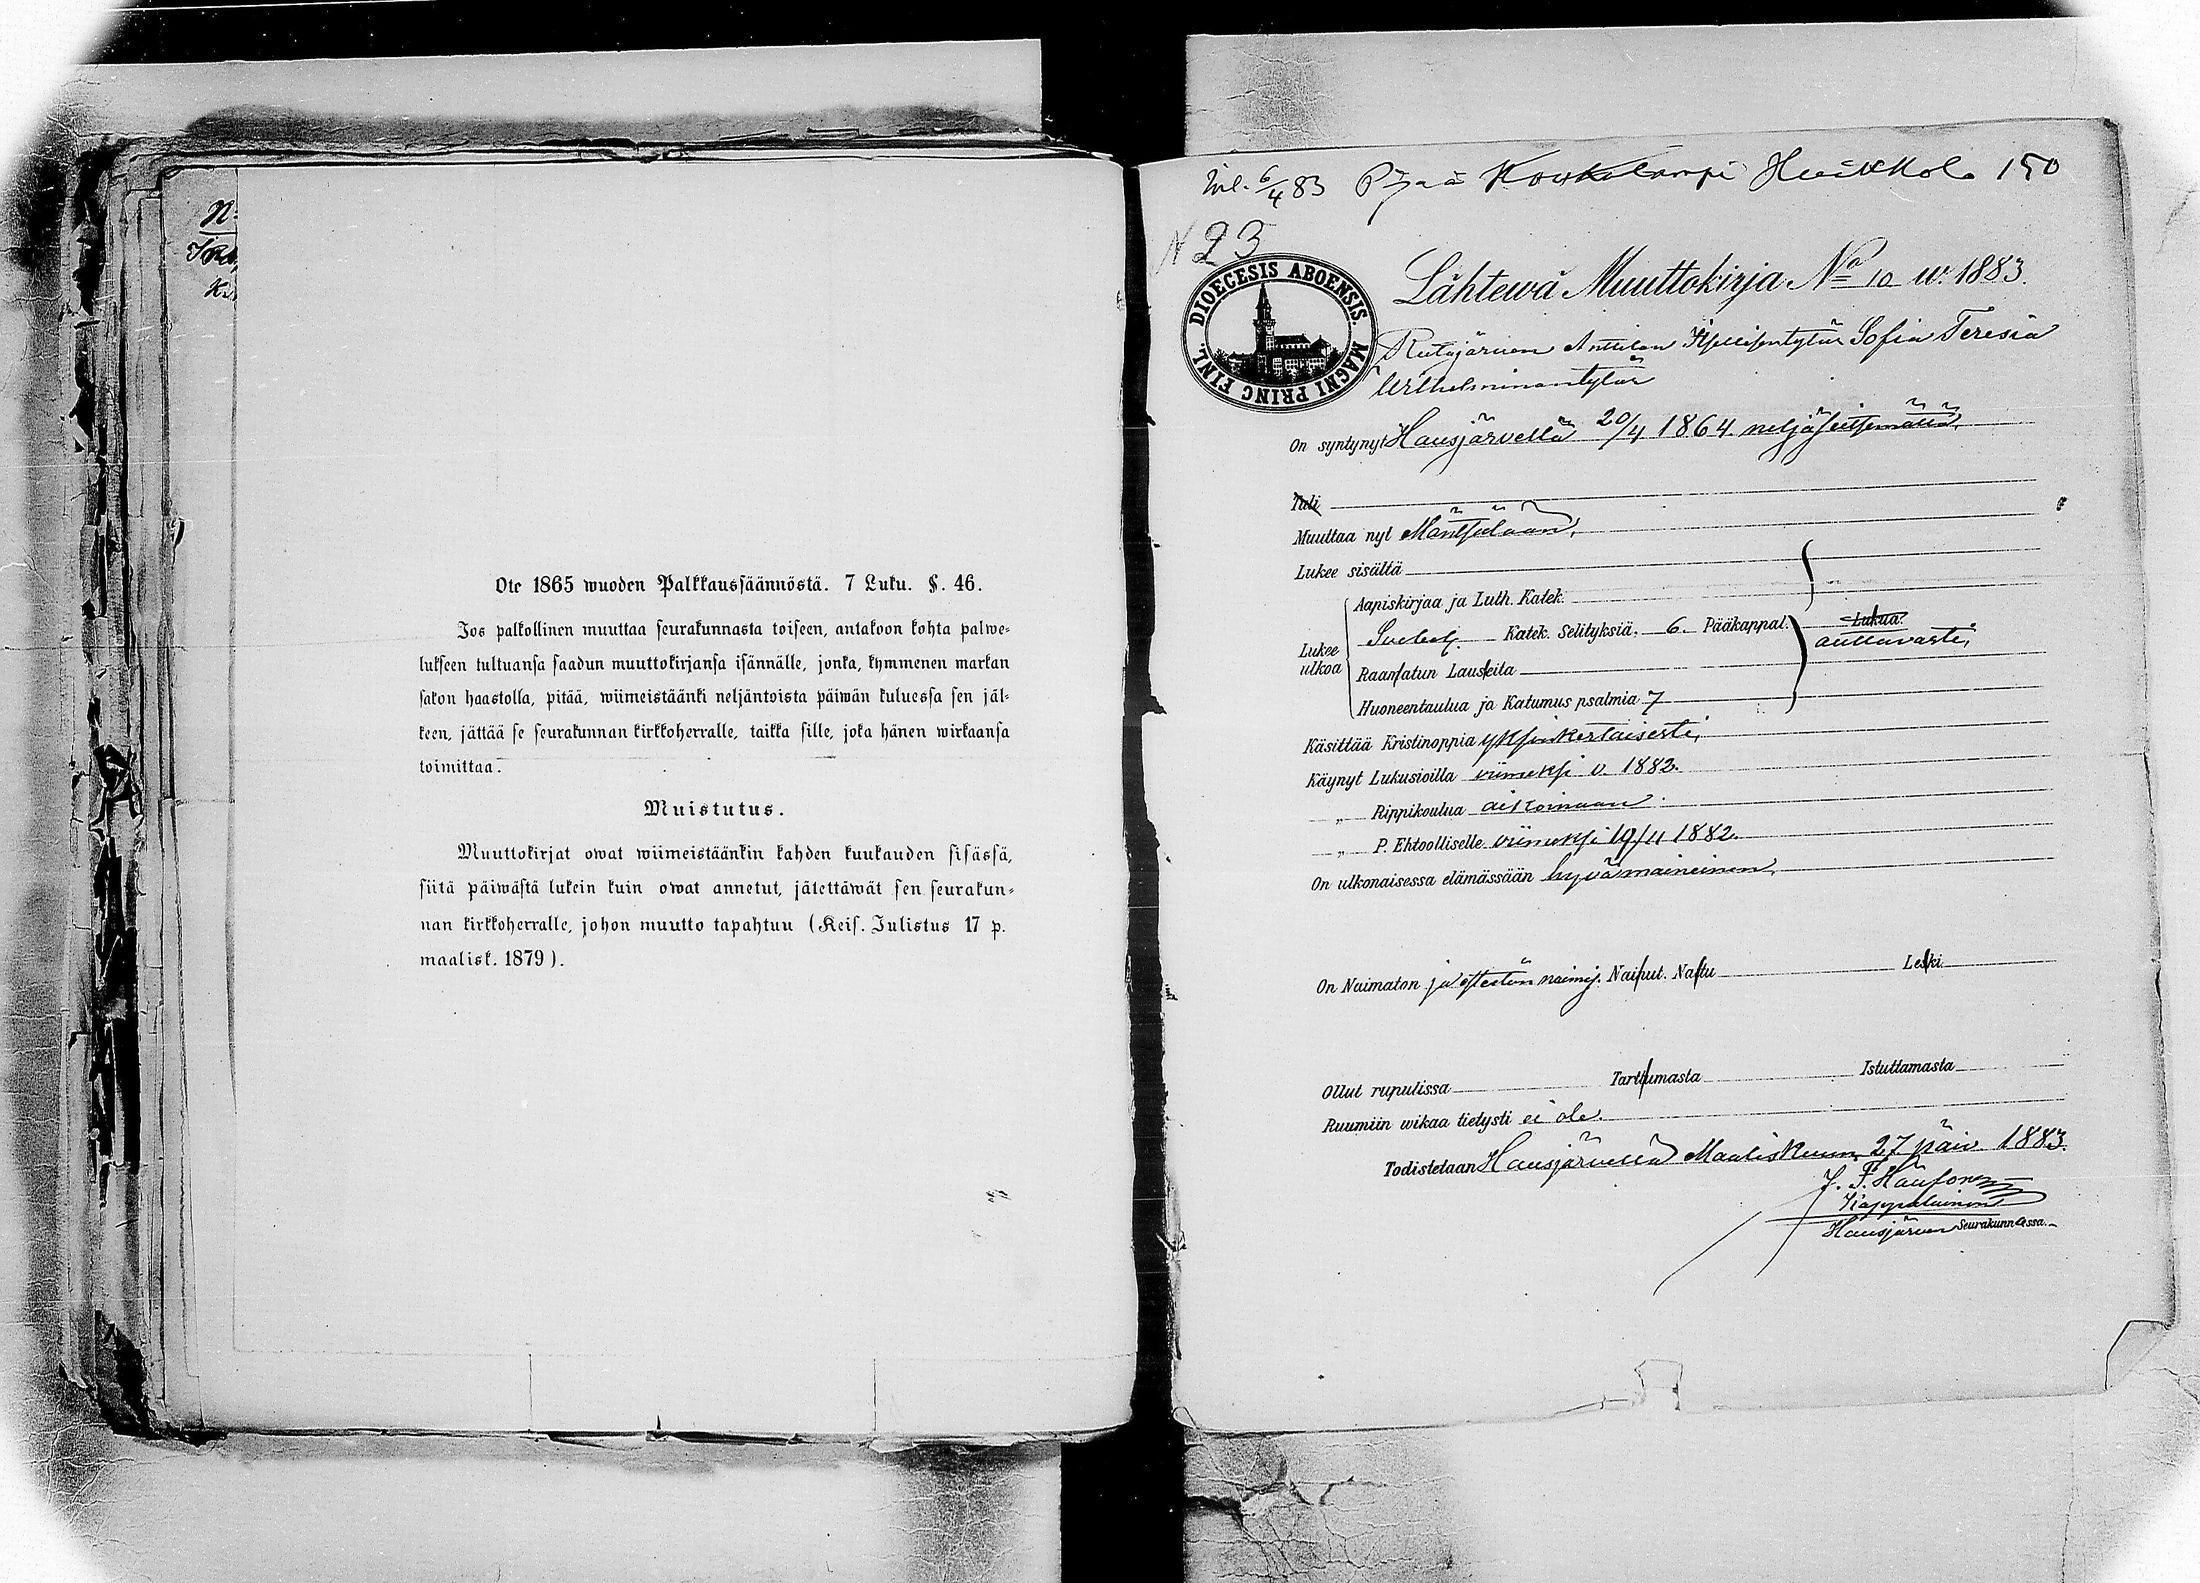 N:
Ote 1865 wuoden Palkkaussäännöstä. 7 Luku. §. 46.
Jos palkollinen muuttaa seurakunnasta toiseen, antakoon kohta palwe=
lukseen tultuansa saadun muuttokirjansa isännälle, jonka, kymmenen markan
sakon haastolla, pitää, wiimeistäänki neljäntoista päiwän kuluessa sen jäl=
keen, jättää se seurakunnan kirkkoherralle, taikka sille, joka hänen wirkaansa
toimittaa.
Muistutus.
Muuttokirjat owat wiimeistäänkin kahden kuukauden sisässä,
siitä päiwästä lukein kuin owat annetut, jätettäwät sen seurakun=
nan kirkkoherralle, johon muutto tapahtuu (Keis. Julistus 17 p.
maalisk. 1879).
Inl. 6/4 83 Koukolampi 150
N 23
DIOECESIS ABOENSIS. MAGNI PRINC FINL.
Lähtewä Muuttokirja No 10 w. 1883.
Anttilan Sofia Teresia
On syntynyt Hausjärvellä 20/4 1864 neljäseitsemättä,
Tuli
Muuttaa nyt Mäntsälään,
Lukee sisältä
Lukee ulkoa
Aapiskirjaa ja Luth. Katek.
Svebelj. Katek. Selityksiä. 6. Pääkappal. Lukua. auttavasti,
Raamatun Lauseita
Huoneentaulua ja Katumus psalmia 7
Käsittää Kristinoppia yksinkertaisesti,
Käynyt Lukusioilla viimeksi v. 1883.
„ Rippikoulua aikoinaan.
„ P. Ehtoolliselle viimeksi 19/11 1882.
On ulkonaisessa elämässään hyvämaineinen.
On Naimaton ja esteetön naimis. Nainut. Nastu Leski
Ollut rupulissa Tarttumasta Istuttamasta
Ruumiin wikaa tietysti ei ole.
Todistetaan Hausjärvellä Maaliskuun 27 päiv. 1883.
J. F.
Kappalainen
Hausjärven Seurakunnassa.